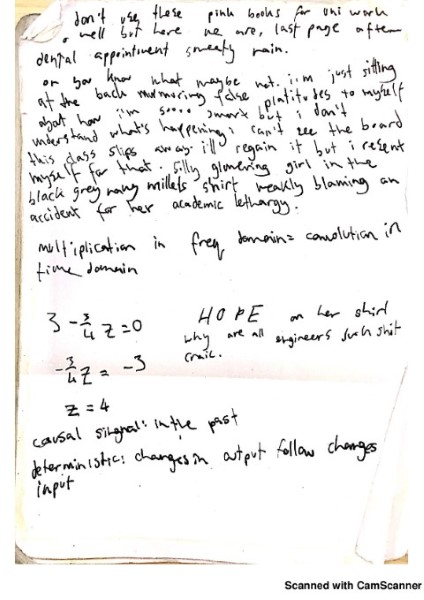 don't use these pink books for uni work
well but here we are, last page after
dental appointment sweaty rain.
or you know what maybe not. i'm just sitting
at the back murmuring false platitudes to myself
about how i'm soooo smart but i don't
understand what's happening; i can't see the board
this class slips away. i'll regain it but i resent
myself for that. silly glowering girl in the
black grey navy millets shirt weakly blaming an
accident for her academic lethargy.
multiplication in freq domain = convolution in
time domain
3 - 3/4 z = 0
HOPE on her shirt
why are all engineers such shit
craic.
-3/4 z = -3
z = 4
causal singnal: in the past
deterministic: changes in output follow changes
input
Scanned with CamScanner